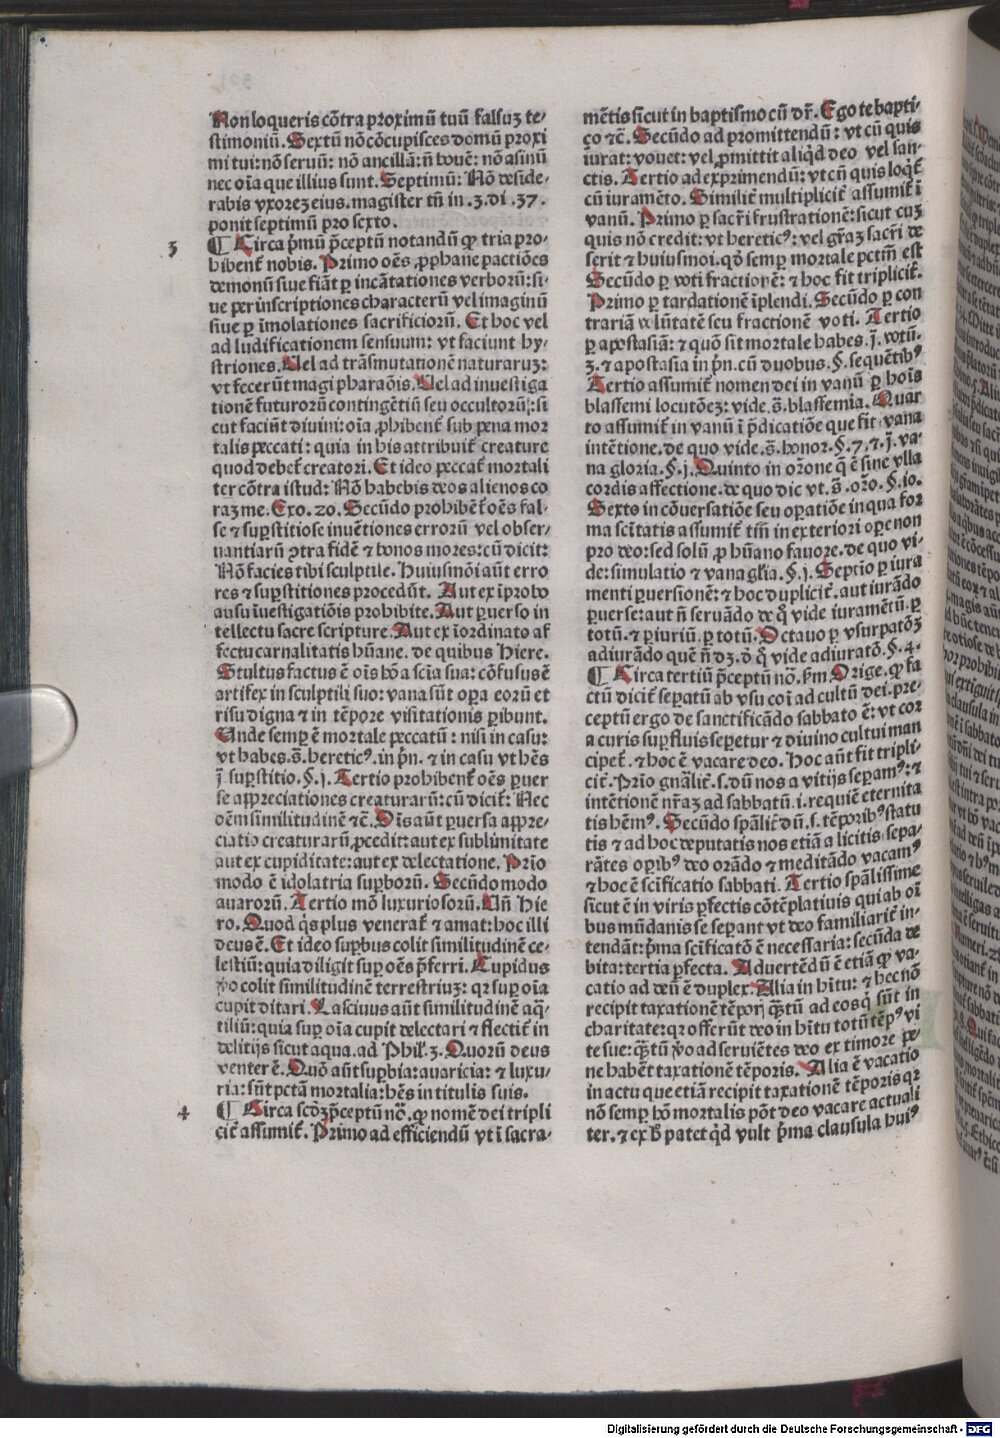 Non loqueris cõtra proximũ tuũ falsuʒ te-
stimoniũ. Sextũ nõ cõcupisces domũ proxi
mi tui: nõ seruũ: nõ ancillã: ñ bouẽ: nõ asinũ
nec oĩa que illius sunt. Septimũ: Nõ deside-
rabis vxoreʒ eius. magister tñ in .3. di .37.
ponit septimũ pro sexto.
3
¶ Circa p̃mũ p̃ceptũ notandũ ꝙ tria pro-
hibent᷑ nobis. Primo oẽs ꝓphane pactiões
demonũ siue fiãt ꝑ incãtationes verborũ: si-
ue per inscriptiones characterũ vel imaginũ
siue ꝑ ĩmolationes sacrificiorũ. Et hoc vel
ad ludificationem sensuum: vt faciunt hy-
striones. Uel ad trãsmutationẽ naturaruʒ:
vt fecerũt magi pharaõis. Uel ad inuestiga
tionẽ futurorũ contingẽtiũ seu occultorũ: si
cut faciũt diuini: oĩa ꝓhibent᷑ sub pena mor
talis peccati: quia in his attribuit᷑ creature
quod debet᷑ creatori. Et ideo peccat᷑ mortali
ter cõtra istud: Nõ habebis deos alienos co
raʒ me. Exo. 20. Secũdo prohibent᷑ oẽs fal-
se ⁊ suꝑstitiose inuẽtiones errorũ vel obser-
uantiarũ ꝯtra fidẽ ⁊ bonos mores: cũ dicit:
Nõ facies tibi sculptile. Huiusmõi aũt erro
res ⁊ suꝑstitiones procedũt. Aut ex ĩprobo
ausu ĩuestigatiõis prohibite. Aut ꝑuerso in
tellectu sacre scripture. Aut ex ĩordinato af
fectu carnalitatis hũane. de quibus Hiere.
Stultus factus ẽ oĩs hõ a scĩa sua: cõfusus ẽ
artifex in sculptili suo: vana sũt oꝑa eorũ et
risu digna ⁊ in tẽpore visitationis ꝑibunt.
Unde semꝑ ẽ mortale peccatũ: nisi in casu:
vt habes .s̃. heretic⁹. in pñ. ⁊ in casu vt hẽs
ĩ suꝑstitio. §. j. Tertio prohibent᷑ oẽs ꝑuer
se appreciationes creaturarũ: cũ dicit᷑: Nec
oẽm similitudinẽ ⁊c̃. Oĩs aũt ꝑuersa appre-
ciatio creaturarũ ꝓcedit: aut ex sublimitate
aut ex cupiditate: aut ex delectatione. Prĩo
modo ẽ idolatria suꝑborũ. Secũdo modo
auarorũ. Tertio mõ luxuriosorũ. Uñ Hie
ro. Quod q̃s plus venerat᷑ ⁊ amat: hoc illi
deus ẽ. Et ideo suꝑbus colit similitudinẽ ce-
lestiũ: quia diligit suꝑ oẽs p̃ferri. Cupidus
ṽo colit similitudinẽ terrestriuʒ: qꝛ suꝑ oĩa
cupit ditari. Lasciuus aũt similitudinẽ aq̃-
tiliũ: quia suꝑ oĩa cupit delectari ⁊ flectit᷑ in
delitijs sicut aqua. ad Phil᷑. 3. Quorũ deus
venter ẽ. Quõ aũt suꝑbia: auaricia: ⁊ luxu-
ria: sũt pctã mortalia: hẽs in titulis suis.
4
¶ Circa scďʒ p̃ceptũ nõ. ꝙ nomẽ dei tripli
cit᷑ assumit᷑. Primo ad efficiendũ vt ĩ sacra-
mẽtis sicut in baptismo cũ dr̃. Ego te bapti-
ço ⁊c̃. Secũdo ad promittendũ: vt cũ quis
iurat: vouet: vel ꝓmittit aliq̃d deo vel san-
ctis. Tertio ad exprimendũ: vt cũ quis loqt᷑
cũ iuramẽto. Similit᷑ multiplicit᷑ assumit᷑ ĩ
vanũ. Primo ꝑ sacr̃i frustrationẽ: sicut cuʒ
quis nõ credit: vt heretic⁹: vel gr̃aʒ sacr̃i de
serit ⁊ huiusmoi. qõ semꝑ mortale pctm̃ est
Secũdo ꝑ voti fractionẽ: ⁊ hoc fit triplicit᷑.
Primo ꝑ tardationẽ ĩplendi. Secũdo ꝑ con
trariã volũtatẽ seu fractionẽ voti. Tertio
ꝑ apostasiã: ⁊ quõ sit mortale habes .j̃. votũ.
3. ⁊ apostasia in pñ. cũ duobus .§. sequẽtib⁹
Tertio assumit᷑ nomen dei in vanũ ꝑ hoĩs
blasfemi locutõeʒ: vide .s̃. blasfemia. Quar
to assumit᷑ in vanũ ĩ p̃dicatiõe que fit vana
intẽtione. de quo vide .s̃. honor. §. 7. ⁊ .j̃. va-
na gloria. §. j. Quinto in orõne q̃ ẽ sine vlla
cordis affectione. de quo dic vt .s̃. or̃o. §. jo.
Sexto in cõuersatiõe seu oꝑatiõe in qua for
ma scĩtatis assumit᷑ tm̃ in exteriori oꝑe non
pro deo: sed solũ ꝓ hũano fauore. de quo vi-
de: simulatio ⁊ vana gl̃ia. §. j. Septĩo ꝑ iura
menti ꝑuersionẽ: ⁊ hoc duplicit᷑. aut iurãdo
ꝑuerse: aut ñ seruãdo de q̃ vide iuramẽtũ. ꝑ
totũ. ⁊ ꝑiuriũ. ꝑ totũ. Octauo ꝑ vsurpatõʒ
adiurãdo quẽ ñ dʒ. ď q̃ vide adiuratõ. §. 4.
¶ Circa tertiũ p̃ceptũ nõ. ẜm Orige. ꝙ sa
ctũ dicit᷑ seꝑatũ ab vsu coĩ ad cultũ dei. pre-
ceptũ ergo de sanctificãdo sabbato ẽ: vt cor
a curis suꝑfluis seꝑetur ⁊ diuino cultui man
cipet᷑. ⁊ hoc ẽ vacare deo. Hoc aũt fit tripli-
cit᷑. Prĩo gñalit᷑. s. dũ nos a vitijs seꝑam⁹: ⁊
intẽtionẽ nr̃aʒ ad sabbatũ .i. requiẽ eternita
tis hẽm⁹. Secũdo sp̃alit᷑ dũ .s. tẽporib⁹ statu
tis ⁊ ad hoc deputatis nos etiã a licitis seꝑa-
rãtes oꝑib⁹ deo orãdo ⁊ meditãdo vacam⁹
⁊ hoc ẽ scĩficatio sabbati. Tertio sp̃alissime
sicut ẽ in viris ꝑfectis cõtẽplatiuis qui ab oĩ
bus mũdanis se seꝑant vt deo familiarit᷑ in-
tendãt: p̃ma scĩficatõ ẽ necessaria: secũda de
bita: tertia ꝑfecta. Aduertẽdũ ẽ etiã ꝙ va-
catio ad deũ ẽ duplex. Alia in hĩtu: ⁊ hec nõ
recipit taxationẽ tẽporꝭ q̃tũ ad eos q̃ sũt in
charitate: qꝛ offerũt deo in hĩtu totũ tẽp⁹ vi
te sue: q̃tũ ṽo ad seruiẽtes deo ex timore pe-
ne habẽt taxationẽ tẽporis. Alia ẽ vacatio
in actu que etiã recipit taxationẽ tẽporis qꝛ
nõ semꝑ hõ mortalis põt deo vacare actuali
ter. ⁊ ex ħ patet q̃d vult p̃ma clausula hui⁹
Digitalisierung gefördert durch die Deutsche Forschungsgemeinschaft - DFG